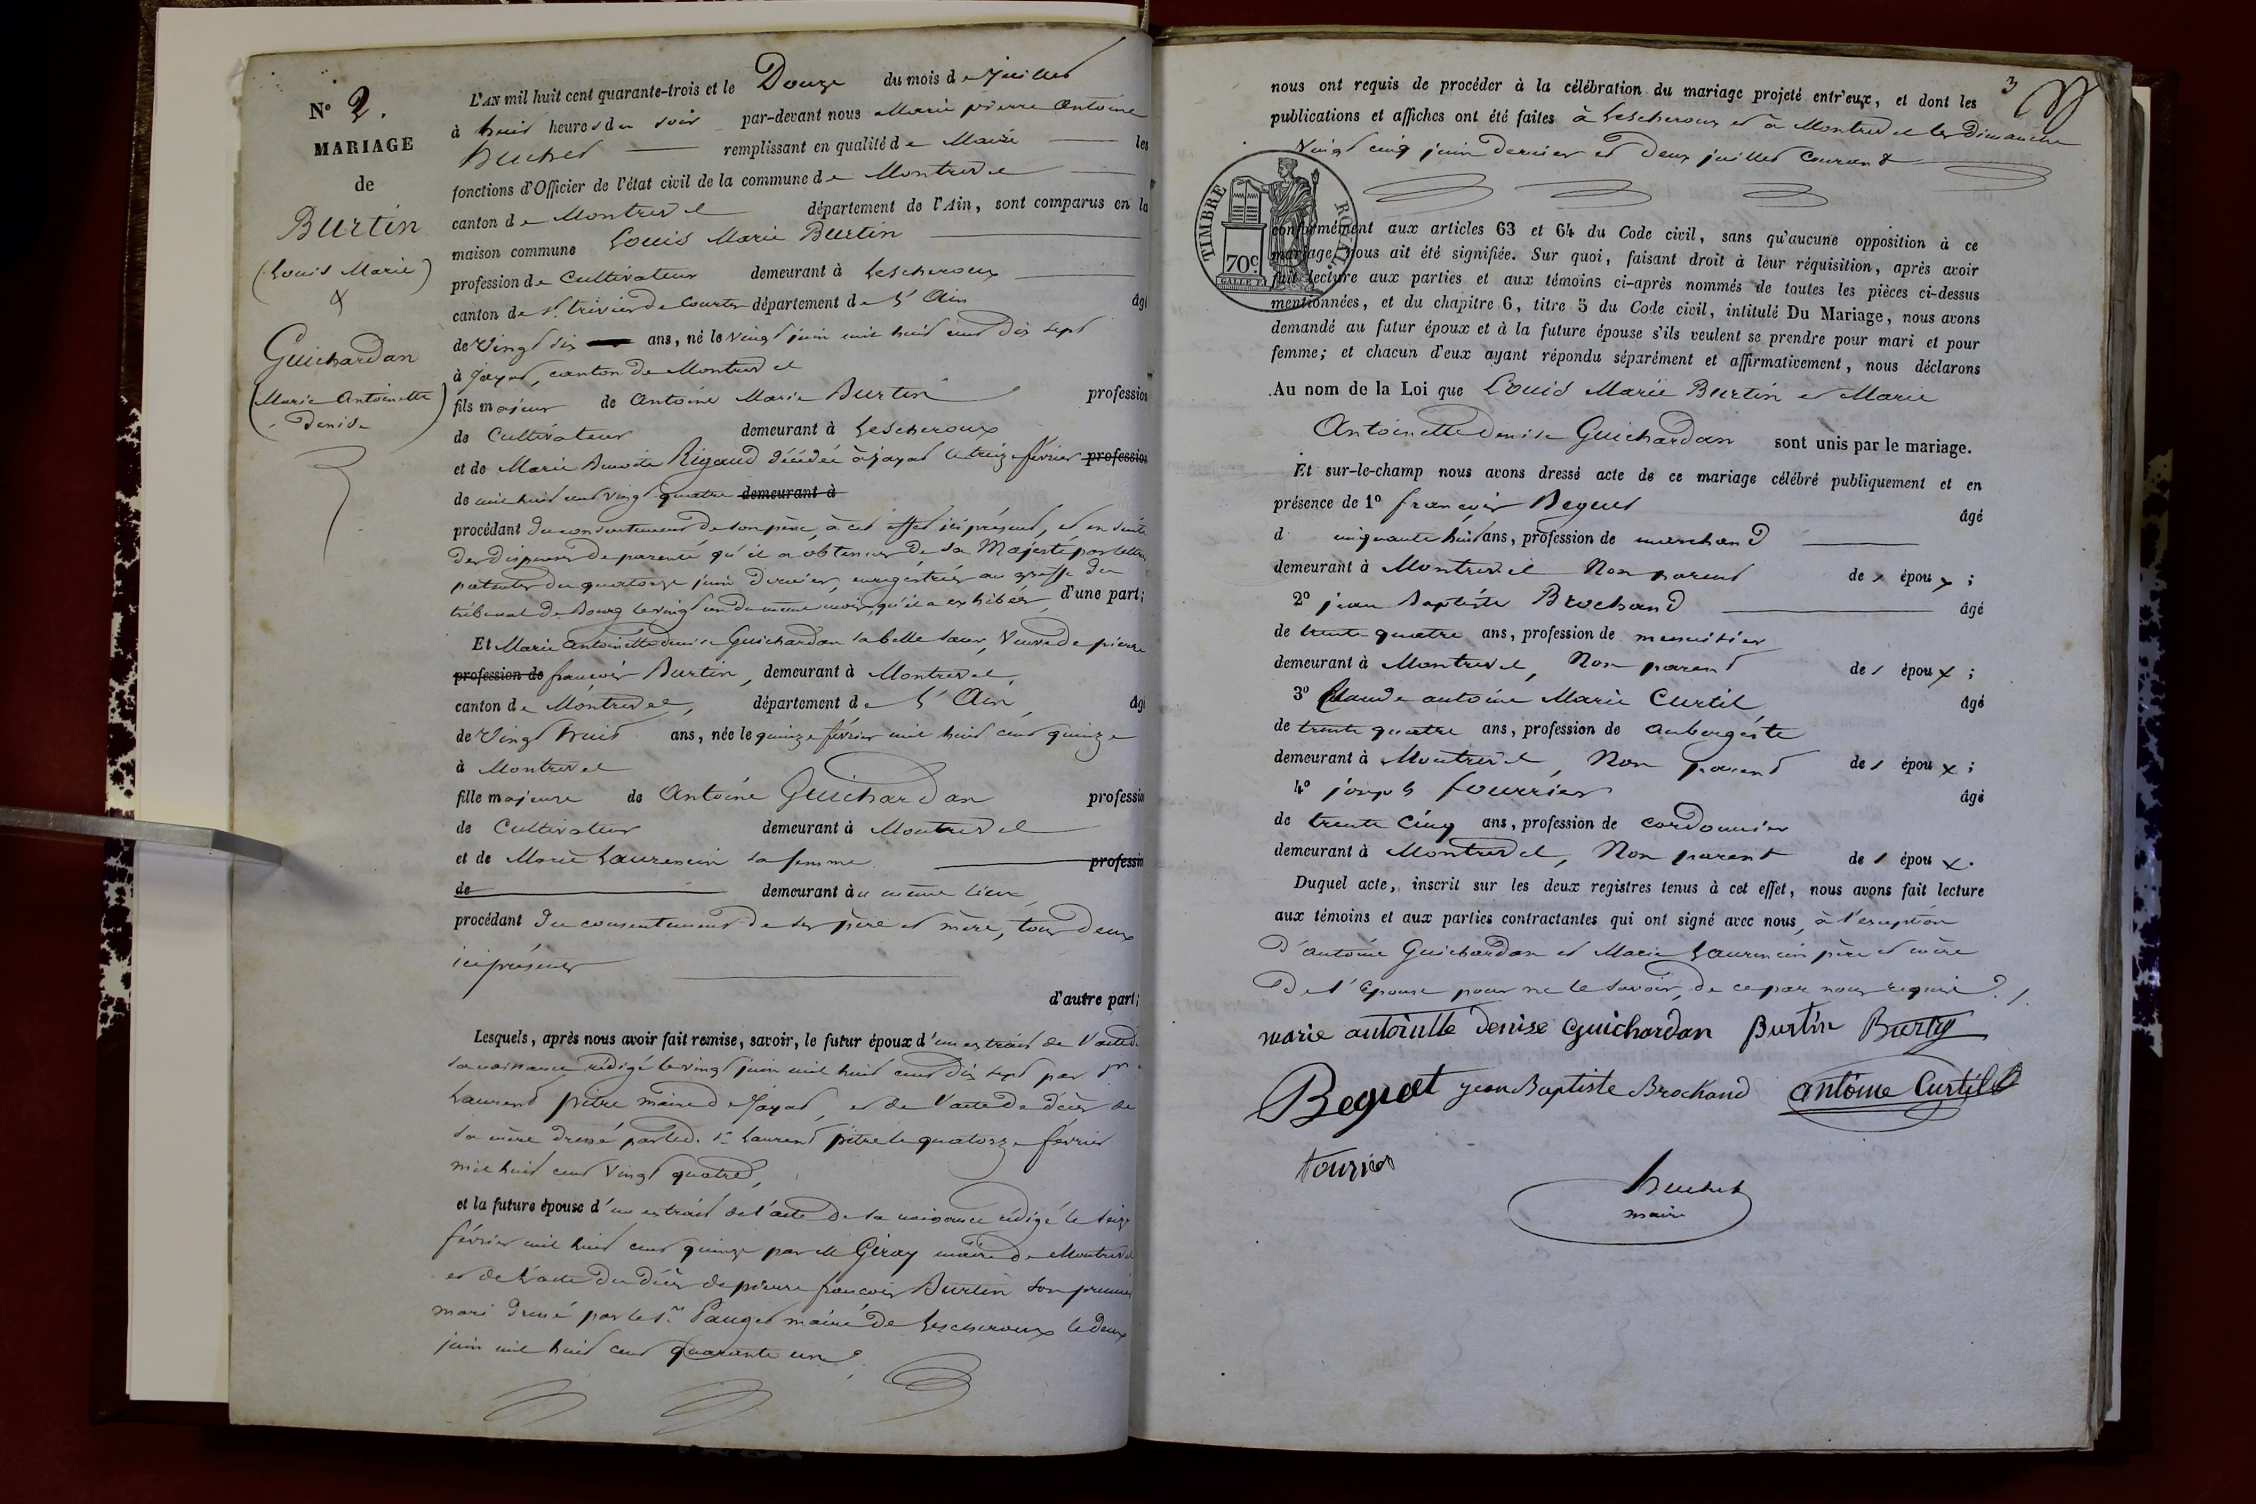 N° 2.
MARIAGE
de
Burtin
(Louis Marie)
&
Guichardan
(Marie Antoinette
Denise)
L'AN mil huit cent quarante-trois et le Douze du mois de juillet
à huit heures du soir par-devant nous Marie pierre Antoine
Buchet remplissant en qualité de Maire les
fonctions d'Officier de l'état civil de la commune de Montrevel
canton de Montrevel département de l'Ain, sont comparus en la
maison commune Louis Marie Burtin
profession de Cultivateur demeurant à Lescheroux
canton de St. trivier de Courtes département de L'Ain âgé
de Vingt six ans, né le vingt juin mil huit cent dix sept
à Jayat, canton de Montrevel
fils majeur de Antoine Marie Burtin profession
de Cultivateur demeurant à Lescheroux
et de Marie Benoite Rigaud décédée à Jayat le treize février profession
de mil huit cent vingt quatre demeurant à
procédant du consentement de son père, à cet effet ici présent, et en suite
des dispenses de parenté qu'il a obtenues de sa Majesté par lettres
patentes du quatorze juin dernier, enregistrées au greffe du
tribunal de Bourg le vingt un du même mois qu'il a exhibées, d'une part;
Et Marie Antoinette denise Guichardan sa belle soeur, Veuve de pierre
profession de françois Burtin, demeurant à Montrevel,
canton de Montrevel, département de L'Ain, âgé
de Vingt huit ans, née le quinze février mil huit cent quinze
à Montrevel
fille majeure de Antoine Guichardan profession
de Cultivateur demeurant à Montrevel
et de Marie Laurencin sa femme profession
de demeurant au même lieu,
procédant du consentement de ses père et mère, tous deux
ici présents
d'autre part;
Lesquels, après nous avoir fait remise, savoir, le futur époux d'un extrait de l'acte de
sa naissance rédigé le vingt juin mil huit cent dix sept par Mr
Laurent pitre maire de Jayat, et de l'acte de décès de
sa mère dressé par led. sr Laurent pitre le quatorze février
mil huit cent vingt quatre,
et la future épouse d'un extrait de l'acte de sa naissance rédigé le seize
février mil huit cent quinze par M Géray maire de Montrevel
et de l'acte du décès de pierre françois Burtin son premier
mari dressé par le sr. Pauget maire de Lescheroux le deux
juin mil huit cent quarante un.
3
nous ont requis de procéder à la célébration du mariage projeté entr'eux, et dont les
publications et affiches ont été faites à Lescheroux et à Montrevel les Dimanche
Vingt cinq juin dernier et deux juillet courant
TIMBRE ROYAL
70c
conformément aux articles 63 et 64 du Code civil, sans qu'aucune opposition à ce
mariage nous ait été signifiée. Sur quoi, faisant droit à leur réquisition, après avoir
fait lecture aux parties et aux témoins ci-après nommés de toutes les pièces ci-dessus
mentionnées, et du chapitre 6, titre 5 du Code civil, intitulé Du Mariage, nous avons
demandé au futur époux et à la future épouse s'ils veulent se prendre pour mari et pour
femme; et chacun d'eux ayant répondu séparément et affirmativement, nous déclarons
Au nom de la Loi que Louis Marie Burtin et Marie
Antoinette denise Guichardan sont unis par le mariage.
Et sur-le-champ nous avons dressé acte de ce mariage célébré publiquement et en
présence de 1° françois Beguet âgé
d cinquante huit ans, profession de marchand
demeurant à Montrevel Non parent de x épou x ;
2° jean Baptiste Brochand âgé
de trente quatre ans, profession de menuisier
demeurant à Montrevel, Non parent de s épou x ;
3° Claude antoine Marie Curtil âgé
de trente quatre ans, profession de aubergiste
demeurant à Montrevel, Non parent de s épou x ;
4° joseph fourrier âgé
de trente cinq ans, profession de cordonnier
demeurant à Montrevel, Non parent de s épou x.
Duquel acte, inscrit sur les deux registres tenus à cet effet, nous avons fait lecture
aux témoins et aux parties contractantes qui ont signé avec nous, à l'exception
D'antoine Guichardan et Marie Laurencin père et mère
De l'Epouse pour ne le savoir, de ce par nous requis.
marie antoinette Denise Guichardan Burtin Burtin
Beguet jean Baptiste Brochand antoine Curtil
fourrier
Buchet
maire